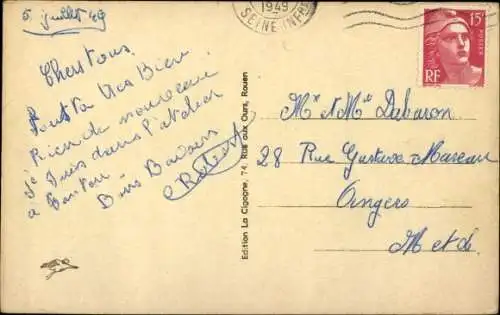 5 juillet 49
Cher tous.
Tout va très Bien.
Rien de nouveau
Je suis dans l'atelier
à
Bons Baisers
Robert
Edition La Cigogne, 74, Rue aux Ours, Rouen
1949
SEINE INFRE
15F
POSTES
RF
Mr et Mme Dabaron
28 Rue Gustave Mareau
Angers
M et L